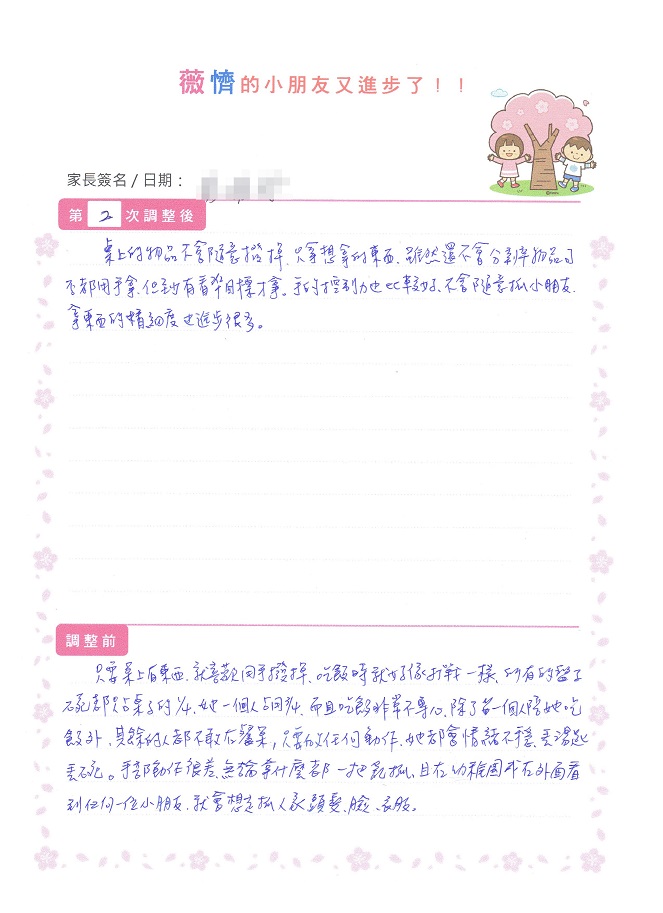 薇憶的小朋友又進步了！！
家長簽名 / 日期：
第 2 次調整後
桌上的物品不會隨意撥掉、只拿想拿的東西、雖然還不會分辨物品可
否都用手拿、但到有看準目標才拿。手的控制力也比較好、不會隨意抓小朋友、
拿東西的精細度也進步很多。
調整前
只要桌上有東西、就喜歡用手撥掉、吃飯時就好像打戰一樣、所有的盤子
碗都只占桌子的1/4、她一個人占用3/4、而且吃飯非常不專心、除了第一個人陪她吃
飯外、其餘的人都不敢在餐桌，只要做任何動作、她都會情緒不穩、丟湯匙
丟碗。手部動作很差、無論拿什麼都一把亂抓、且在幼稚園或在外面看
到任何一位小朋友、就會想去抓人家頭髮、臉、衣服。